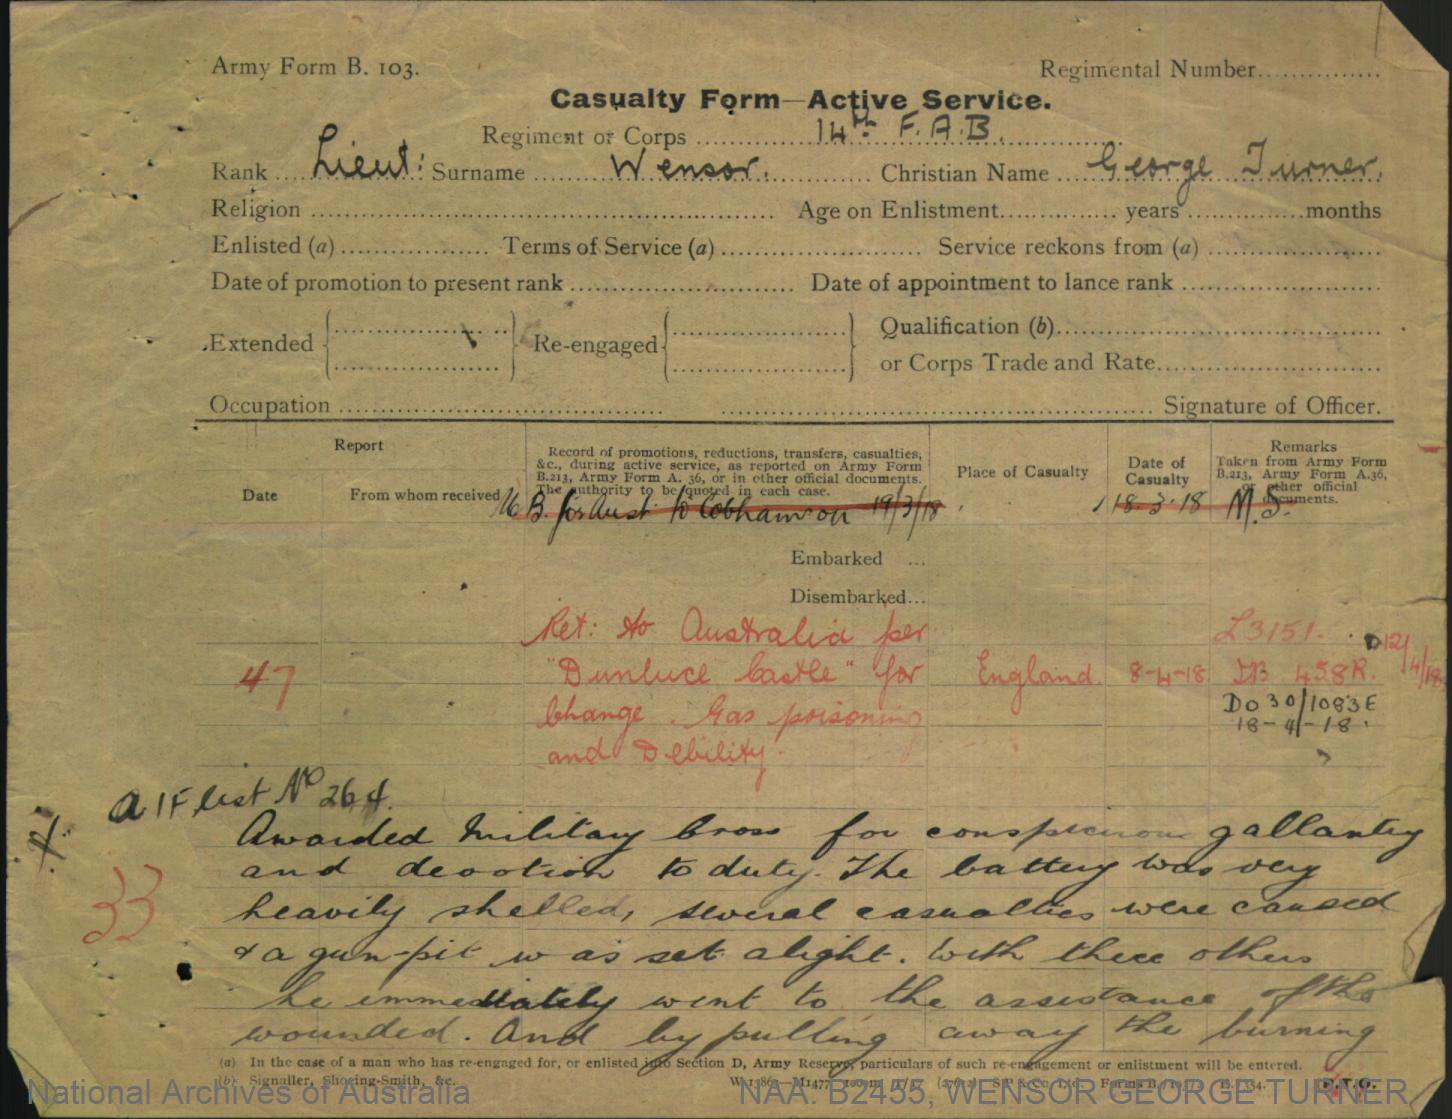 Army Form B. 103.
Regimental Number...............
Casualty Form—Active Service.
Regiment or Corps 14th F.A.B.
Rank Lieut: Surname Wensor. Christian Name George Turner.
Religion Age on Enlistment years months
Enlisted (a) Terms of Service (a) Service reckons from (a)
Date of promotion to present rank Date of appointment to lance rank
Extended Re-engaged Qualification (b)
or Corps Trade and Rate
Occupation Signature of Officer.
Report
Date
From whom received
Record of promotions, reductions, transfers, casualties,
&c., during active service, as reported on Army Form
B.213, Army Form A. 36, or in other official documents.
The authority to be quoted in each case.
Place of Casualty
Date of
Casualty
Remarks
Taken from Army Form
B.213, Army Form A.36,
or other official
documents.
B. for Aust. to Cobham on 19/3/18 18-3-18 M.S.
Embarked ...
Disembarked...
Ret: to Australia per L3151. 12/4/18
47 "Dunluce Castle" for England. 8-4-18 DB 458R.
Change. Gas poisoning DO 30/1083E
18-4-18.
and Debility.
AIF list No 264.
Awarded Military Cross for conspicuous gallantry
and devotion to duty. The battery was very
33 heavily shelled, several casualties were caused
& a gun-pit was set alight. With three others
he immediately went to the assistance of the
wounded. And by pulling away the burning
(a) In the case of a man who has re-engaged for, or enlisted into Section D, Army Reserve, particulars of such re-engagement or enlistment will be entered.
(b) Signaller, Shoeing-Smith, &c. P.T.O.
National Archives of Australia NAA: B2455, WENSOR GEORGE TURNER